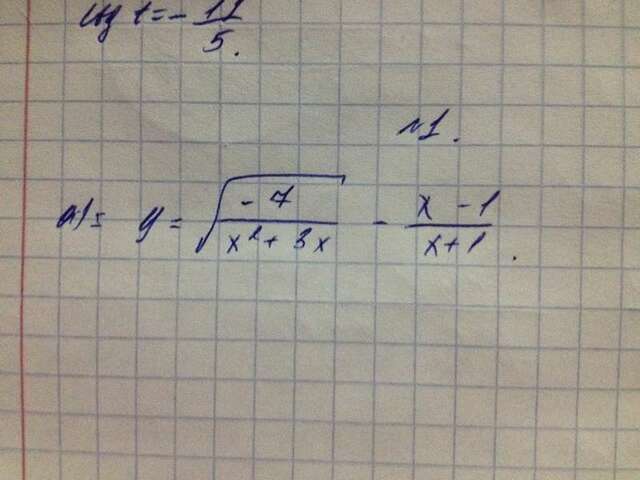 ctg t = - 12/5.
№1.
а) = y = √(-7/(x² + 3x)) - (x - 1)/(x + 1).